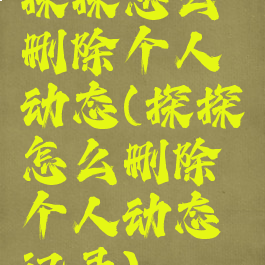 探探怎么
删除个人
动态(探探
怎么删除
个人动态
记录)